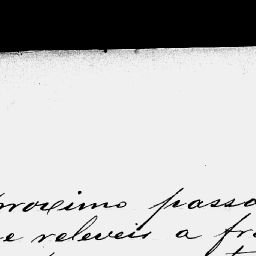 proximo passa
e releveis a fr